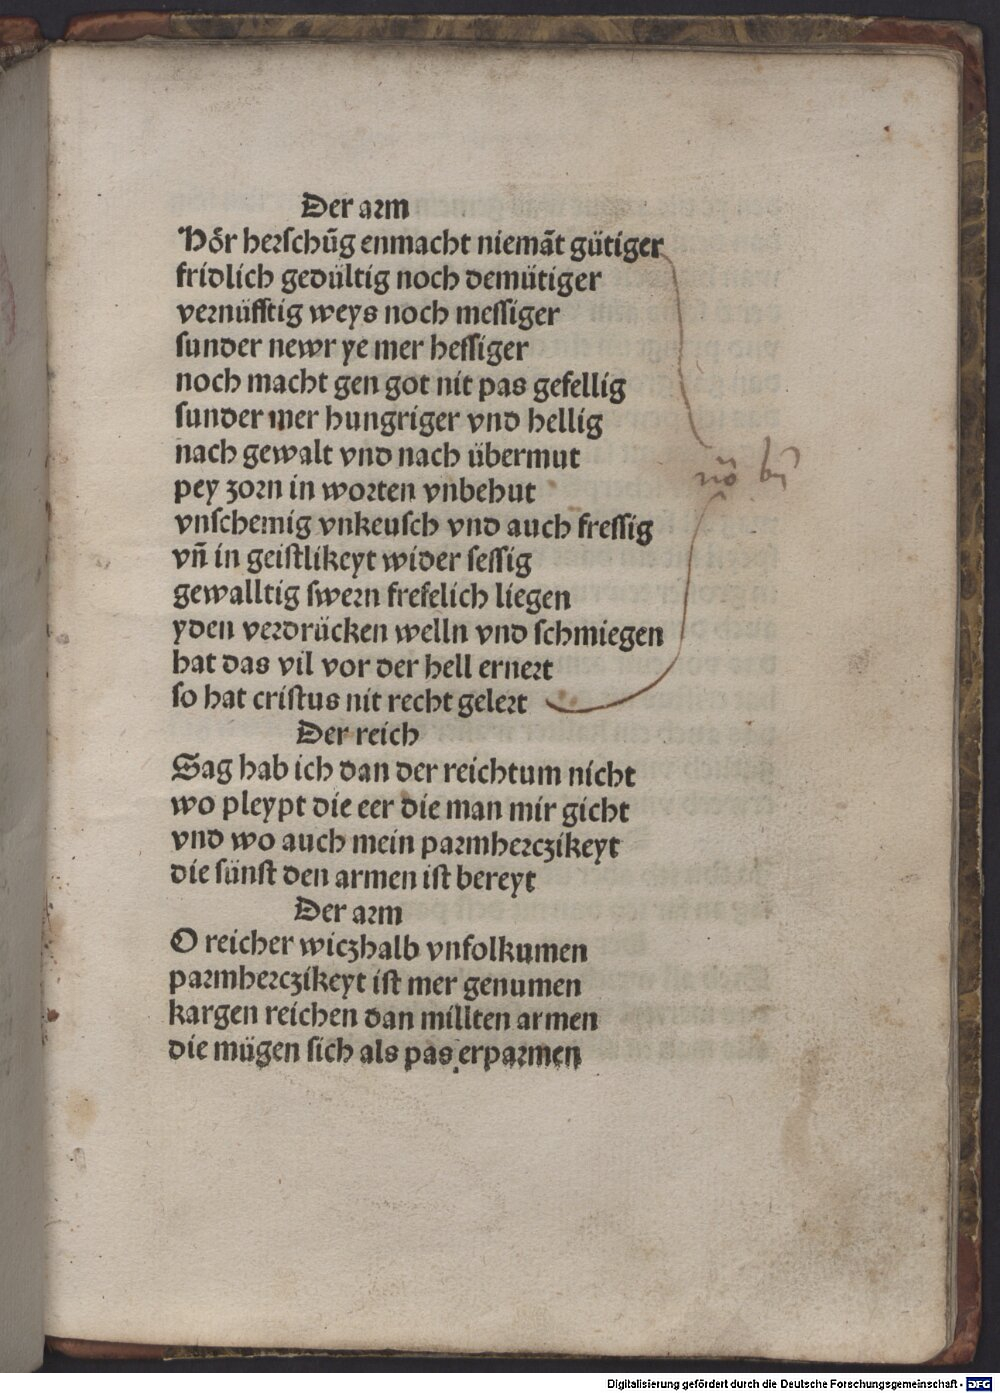 Der arm
Hör herschūg enmacht niemāt gütiger
fridlich gedültig noch demütiger
vernüfftig weys noch messiger
sunder newr ye mer hessiger
noch macht gen got nit pas gefellig
sunder mer hungriger vnd hellig
nach gewalt vnd nach übermut
pey zorn in worten vnbehut
vnschemig vnkeusch vnd auch fressig
vn̄ in geistlikeyt wider sessig
gewalltig swern frefelich liegen
yden verdrücken welln vnd schmiegen
hat das vil vor der hell ernert
so hat cristus nit recht gelert
Der reich
Sag hab ich dan der reichtum nicht
wo pleypt die eer die man mir gicht
vnd wo auch mein parmherczikeyt
die sünst den armen ist bereyt
Der arm
O reicher wiczhalb vnfolkumen
parmherczikeyt ist mer genumen
kargen reichen dan millten armen
die mügen sich als pas erparmen
Digitalisierung gefördert durch die Deutsche Forschungsgemeinschaft - DFG